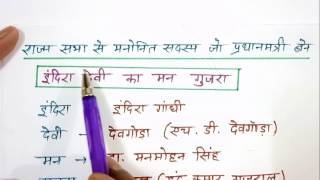 राज्य सभा से मनोनित सदस्य जो प्रधानमंत्री बने
इंदिरा देवी का मन गुजरा
इंदिरा इंदिरा गांधी
देवी → देवगोडा (एच. डी. देवगोडा)
मन → डा. मनमोहन सिंह
कुमार गुजराल)